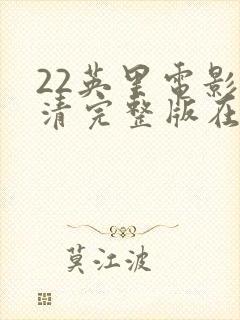 22英里电影
清完整版在
莫江波